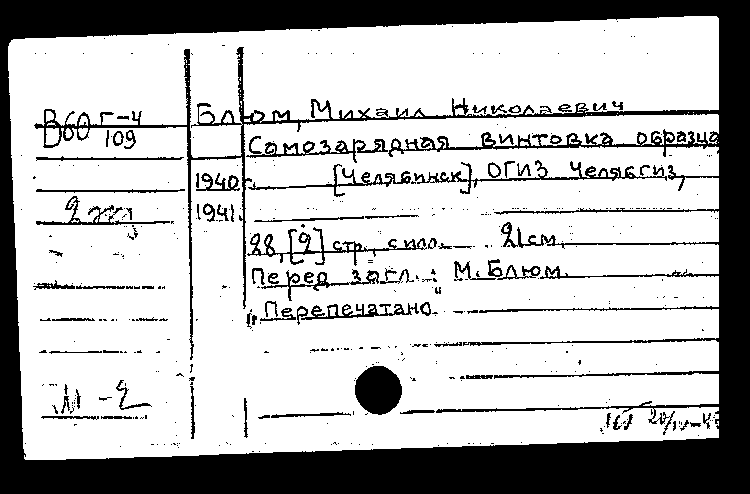 В60 Г-4
109
Блюм, Михаил Николаевич
Самозарядная винтовка образца
1940г. [Челябинск], ОГИЗ Челябгиз,
1941.
2 экз
28, [2] стр., с илл. 21см.
Перед загл.: М. Блюм.
„Перепечатано"
М-2